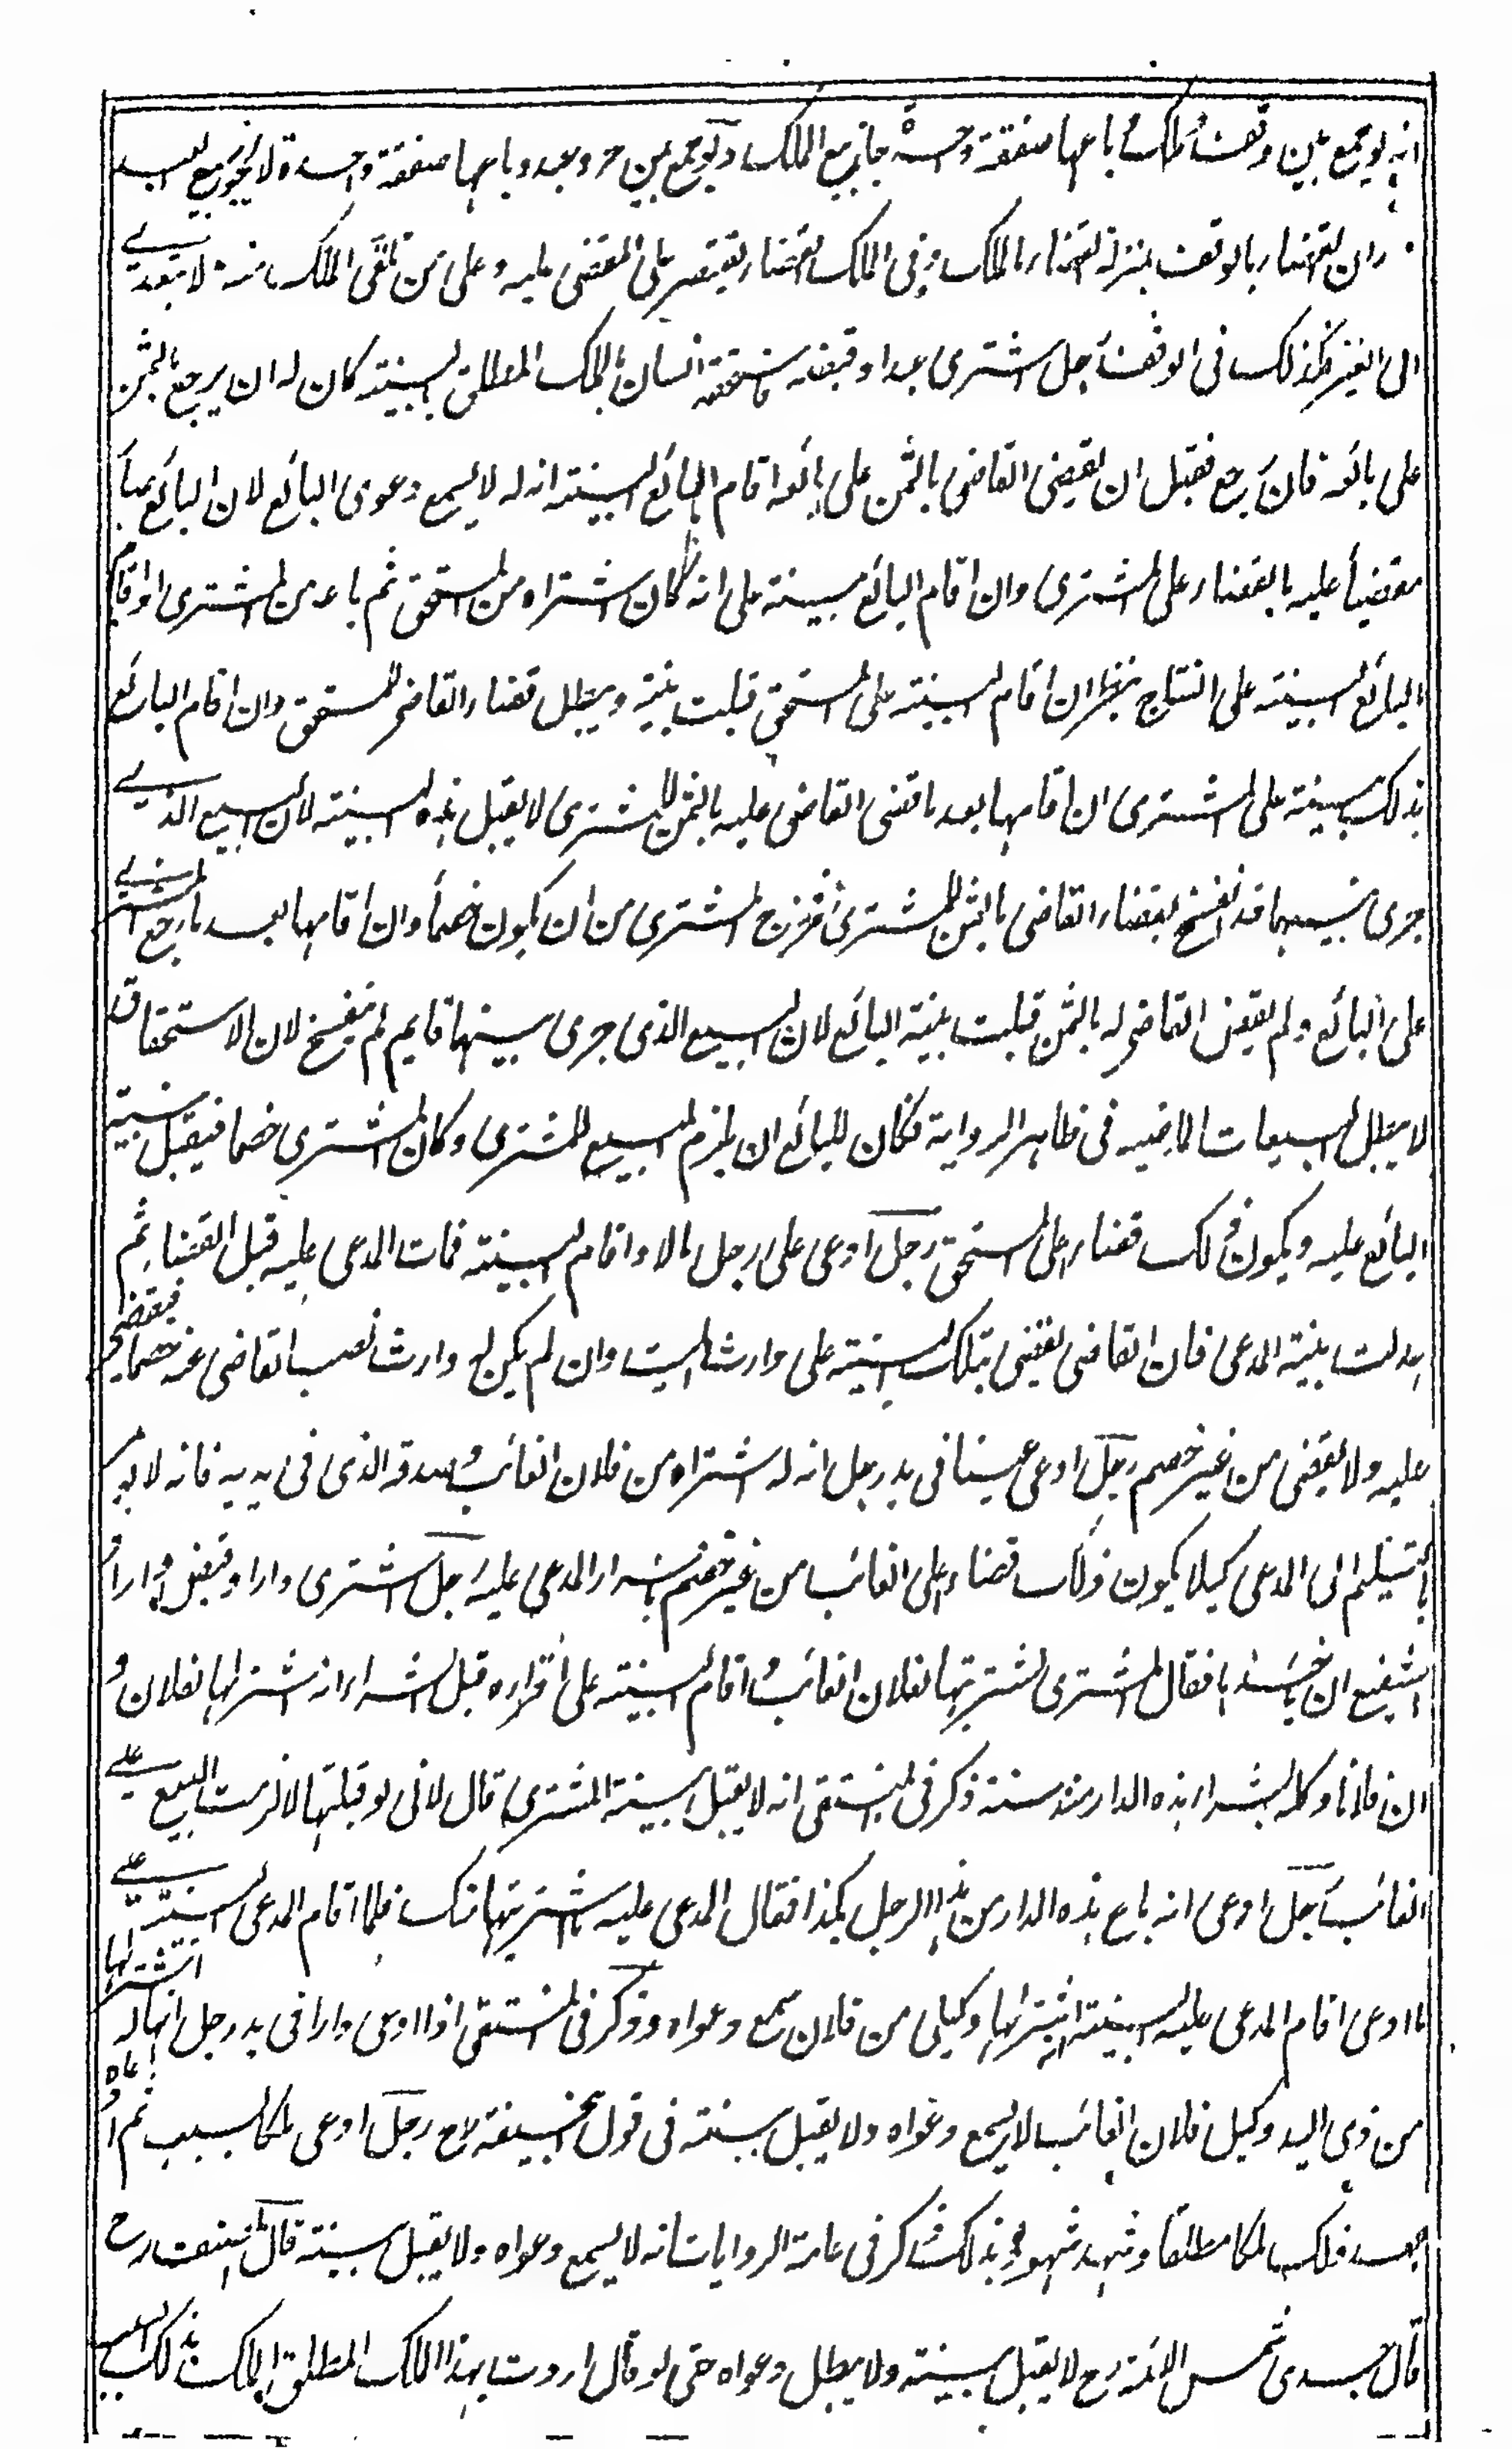 انه لو جمع بين وقف وملك وباعهما صفقة واحدة جاز بيع الملك ولو جمع بين حر وعبد وباعهما صفقة واحدة لا يجوز بيع العبد
وان القضاء بالوقف بمنزلة القضاء بالملك وفى الملك القضاء يقتصر على المقضى عليه وعلى من تلقى الملك منه لا يتعدى
الى الغير فكذلك فى الوقف رجل اشترى عبدا وقبضه فاستحقه انسان بالملك المطلق بالبينة كان له ان يرجع بالثمن
على بائعه فان رجع فقبل ان يقضى القاضى بالثمن على بائعه اقام البائع البينة انه له لا يسمع دعوى البائع لان البائع صار
مقضيا عليه بالقضاء على المشترى وان اقام البائع بينة على انه كان اشتراه من المستحق ثم باعه من المشترى او اقام
البائع البينة على النتاج ينظر ان اقام البينة على المستحق قبلت بينته ويبطل قضاء القاضى للمستحق وان اقام البائع
بذلك بينة على المشترى ان اقامها بعد ما قضى القاضى عليه بالثمن للمشترى لا يقبل هذه البينة لان البيع الذى
جرى بينهما قد انفسخ بقضاء القاضى بالثمن للمشترى فخرج المشترى من ان يكون خصما وان اقامها بعد ما رجع المشترى
على البائع ولم يقض القاضى له بالثمن قبلت بينة البائع لان البيع الذى جرى بينهما قايم لم ينفسخ لان الاستحقاق
لا يبطل البيعات الماضيه فى ظاهر الرواية فكان للبائع ان يلزم البيع المشترى وكان المشترى خصما فيقبل بينة
البائع عليه ويكون ذلك قضاء على المستحق رجل ادعى على رجل مالا واقام البينة فمات المدعى عليه قبل القضاء ثم
عدلت بينة المدعى فان القاضى يقضى بتلك البينة على وارث الميت وان لم يكن له وارث نصب القاضى عنه خصما فيقضى
عليه ولا يقضى من غير خصم رجل ادعى عينا فى يد رجل انه له اشتراه من فلان الغائب وصدقه الذى فى يديه فانه لا يؤمر
بالتسليم الى المدعى كيلا يكون ذلك قضاء على الغائب من غير خصم باقرار المدعى عليه رجل اشترى دارا وقبض واراد
الشفيع ان ياخذها فقال المشترى اشتريتها لفلان الغائب واقام البينة على اقراره قبل الشراء انه اشتراها لفلان و
ان فلانا وكله بشراء هذه الدار منذ سنة ذكر فى المنتقى انه لا يقبل بينة المشترى قال لانى لو قبلتها لالزمت البيع على
الغائب رجل ادعى انه باع هذه الدار من هذا الرجل بكذا فقال المدعى عليه ما اشتريتها منك فلما اقام المدعى البينة على
ما ادعى اقام المدعى عليه البينة انه اشتراها وكيلى من فلان سمع دعواه وذكر فى المنتقى اذا ادعى دارا فى يد رجل انها له اشتراها
من ذى اليد وكيل فلان الغائب لا يسمع دعواه ولا يقبل بينته فى قول ابى حنيفة رح رجل ادعى ملكا بسبب ثم ادعاه
بعد ذلك ملكا مطلقا وشهد شهوده بذلك ذكر فى عامة الروايات انه لا يسمع دعواه ولا يقبل بينته قال المصنف رح
قال جدى شمس الائمة رح لا يقبل بينته ولا يبطل دعواه حتى لو قال اردت بهذا الملك المطلق الملك بذلك السبب